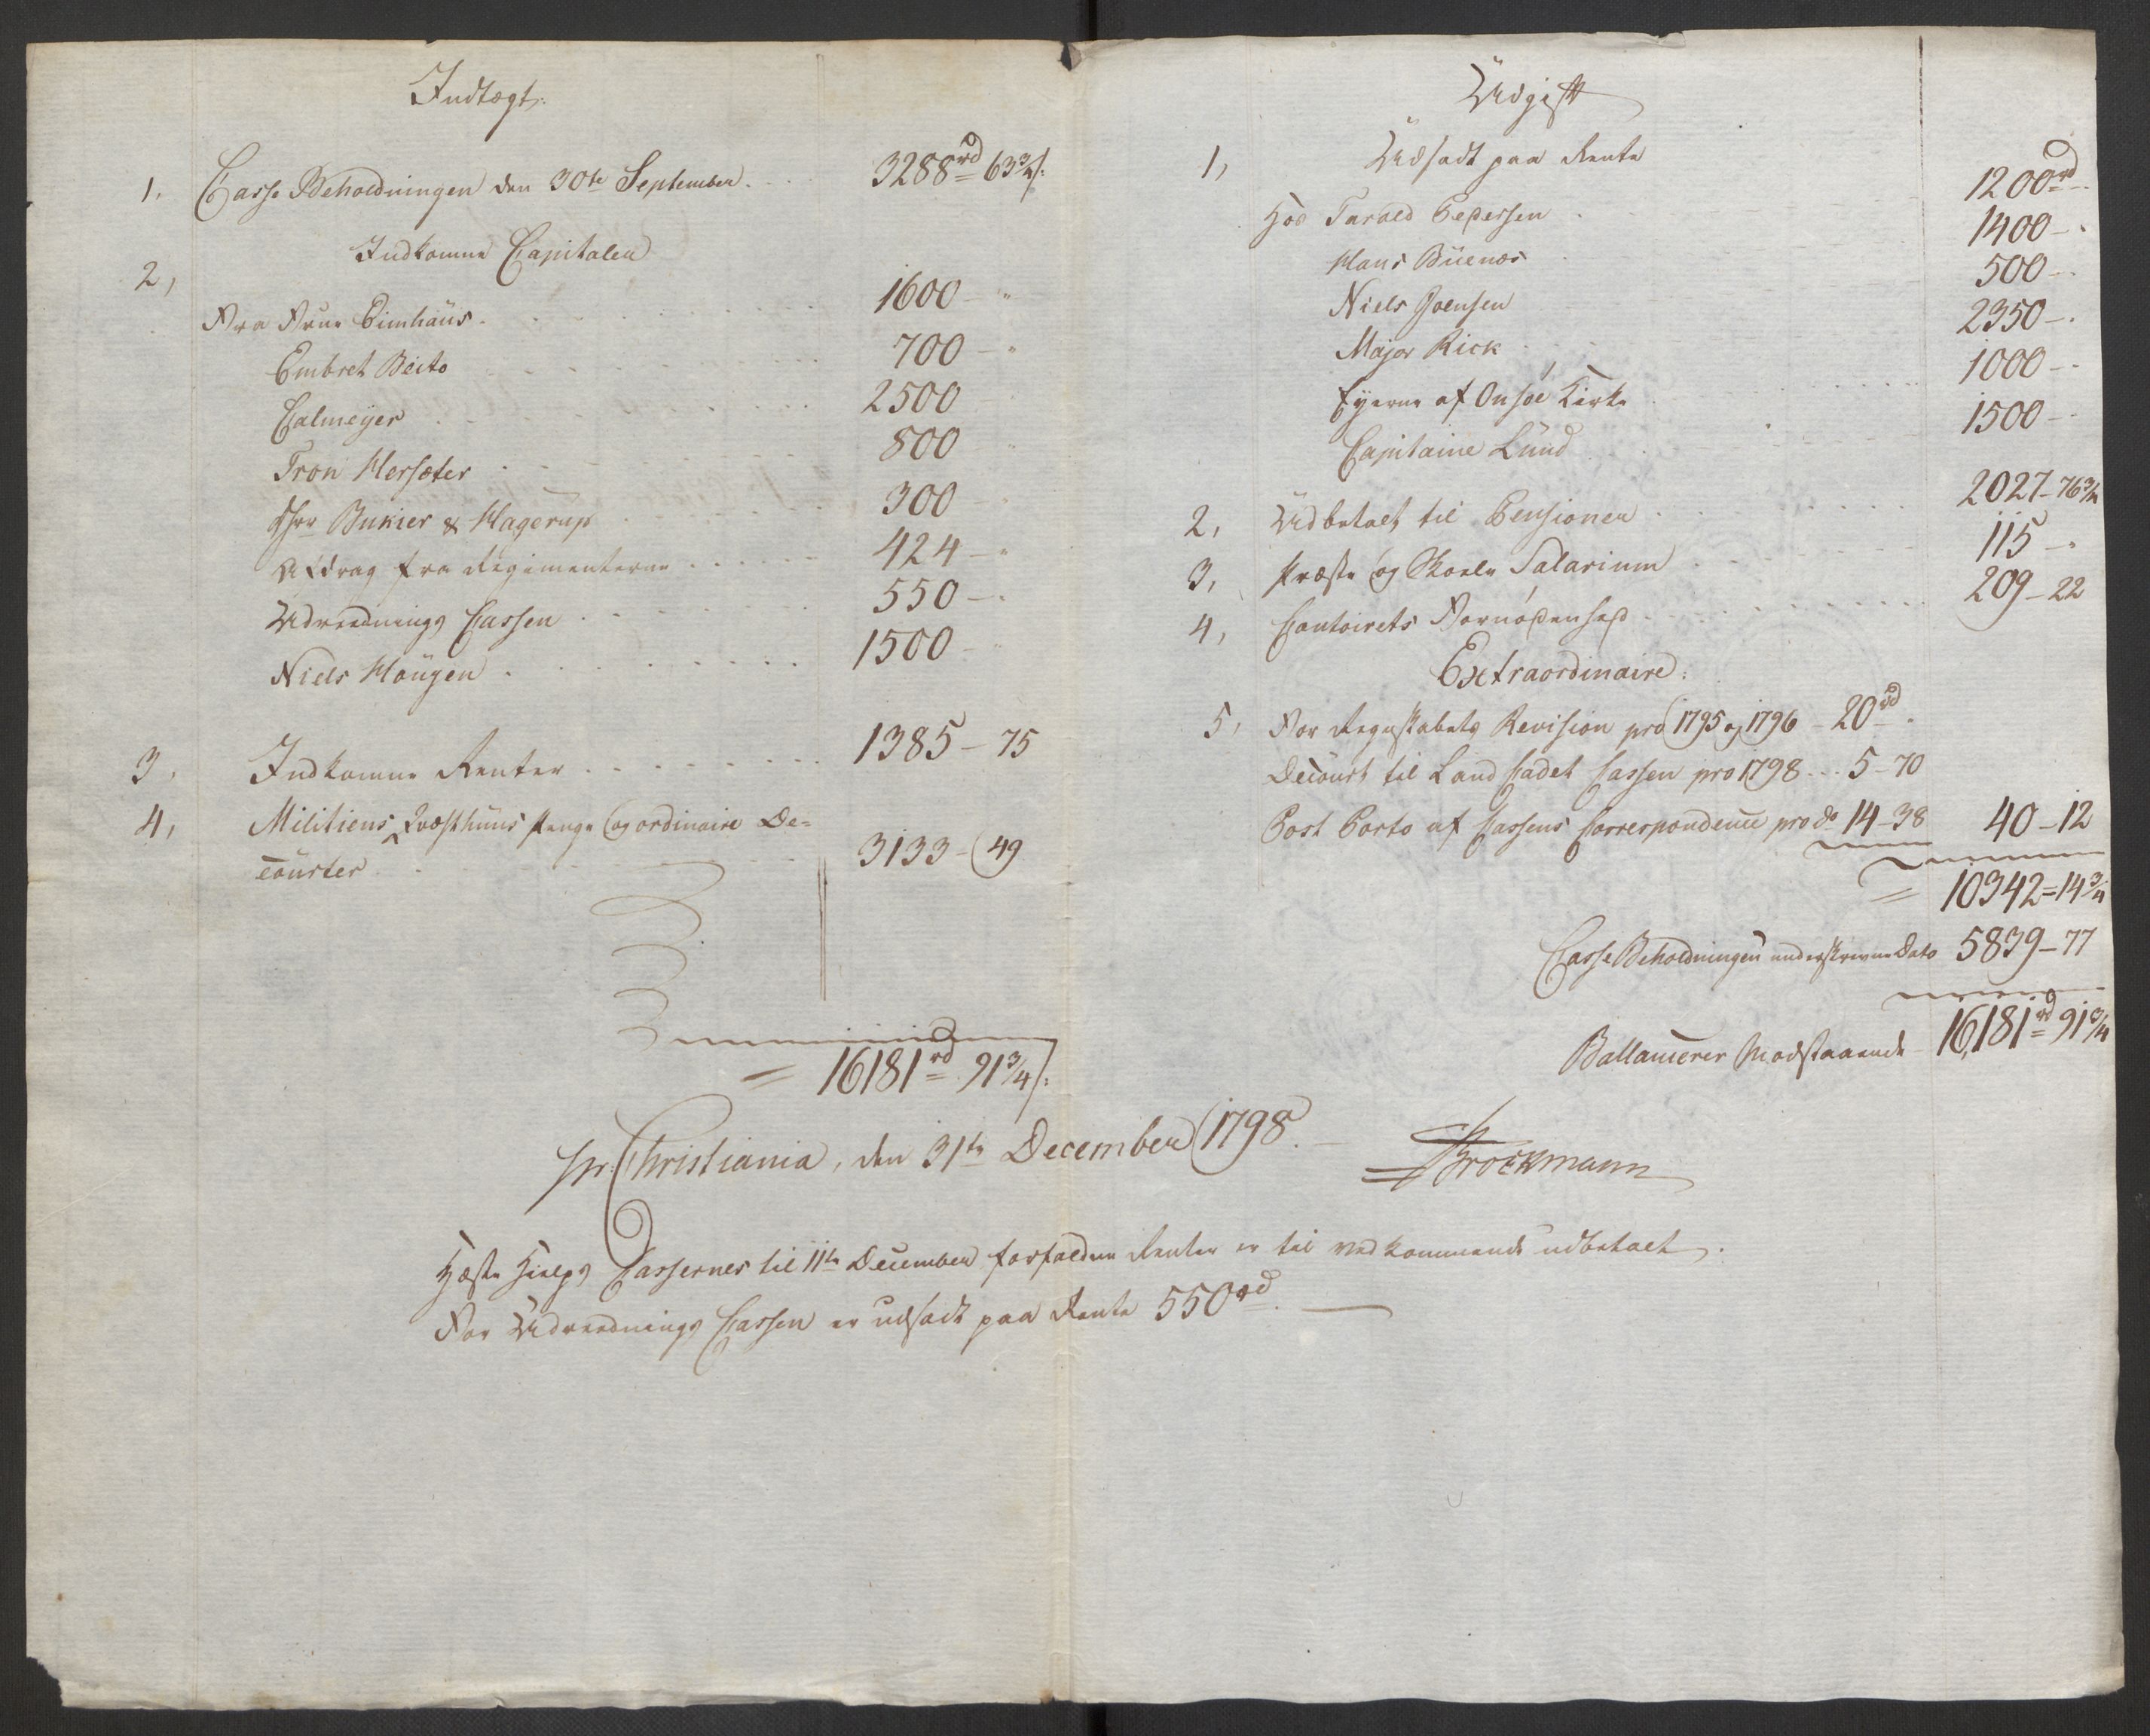 Indtægt.
1. Casse Beholdningen den 30te September. 3288rd 63¾s:
2, Indkomne Capitaler
Fra Frue Eimhaus. 1600 "
Embret Beito 700 "
Calmeyer 2500
Tron Hersæter 800 "
Hrr Bukier & Hagerup 300 "
Afdrag fra Regimenterne 424 "
Udreednings Cassen 550
Niels Haugen 1500 "
3. Indkomne Renter 1385 - 75
4, Militiens Qvæsthuus Penge og ordinaire De=
courter 3133 - 49
= 16181rd 91¾s:
Udgift
1, Udsadt paa Rente
Hos Tarald Pedersen 1200rd
Hans Buenæs 1400
Niels Joensen 500
Major Rick 2350
Eyerne af Onsøe Kirke 1000
Capitaine Lund 1500
2, Udbetalt til Pensioner 2027 - 76¾
3, Præste og Skoele Salarium 115 "
4, Contoirets Fornødenhed 209 - 22
Extraordinaire:
5, For Regnskabets Revision pro 1795 og 1796 - 20rd
Decourt til Land Cadet Cassen pro 1798 5 - 70
Post Porto af Cassens Correspondence pro do 14 - 38 40 - 12
= 10342 = 14¾
Casse Beholdningen underskrevne Dato 5839 - 77
Ballancerer Modstaaende 16,181rd 91¾
Christiania, den 31te December 1798.
Brockmann
Hæste Hielps Cassernes til 11te December forfaldne Renter er til vedkommende udbetalt.
For Udreednings Cassen er udsadt paa Rente 550rd.